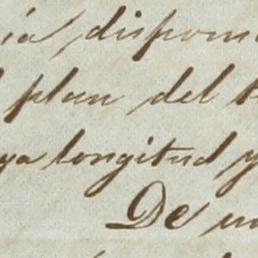 ía dispon
plan del t
ya longitud y
De un